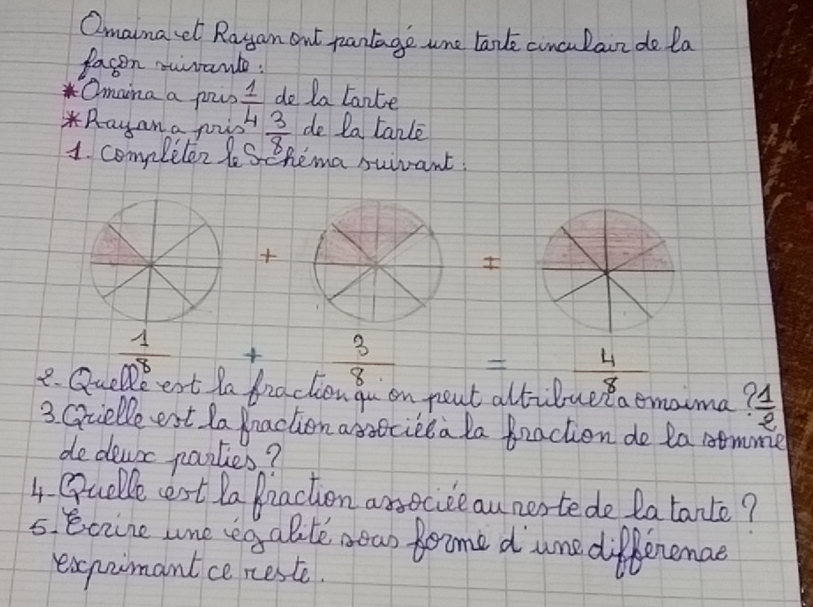 Omaina et Rayan ont partagé une tarte circulair de la
façon suivante :
*Omaina a pris 1/4 de la tarte
*Rayan a pris 3/8 de la tarte
1. compléter le Schéma suivant :
+ =
1/8 + 3/8 = 4/8
2. Quelle est la fraction qu on peut attribuer a omaima ? 1/2
3. Quelle est la fraction associée à la fraction de la somme
de deux parties ?
4- Quelle est la fraction associée au reste de la tarte ?
5. Ecrire une égalité sous forme d'une différenae
exprimant ce reste.